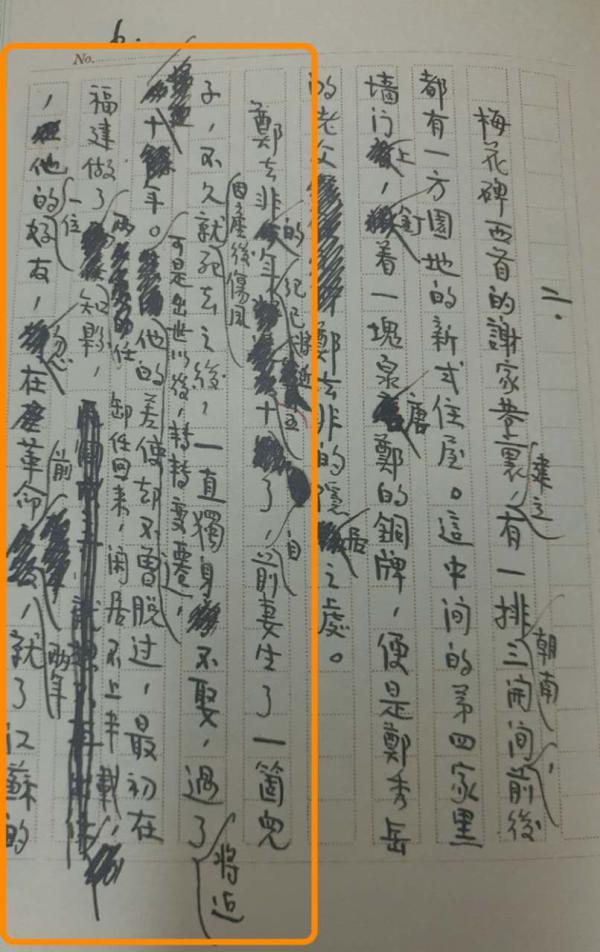 No.
二.
梅花碑西首的謝家巷裏,建立有一排朝南三開間前後
都有一方園地的新式住屋。這中间的第四家黑
墙门上,釘着一塊泉唐鄭的銅牌,便是鄭秀岳
的老父鄭去非的隱居之處。
鄭去非的年纪已將近五十了,自前妻生了一箇兒
子,不久就因產後傷風死去之後,一直獨身不娶,過了將近
十年。可是出世以後,轉轉變遷,他的差使却不曾脱过,最初在
福建做了兩任知縣,卸任回来,闲居不上半載,
他的一位好友,忽在革命前兩年,就了江蘇的